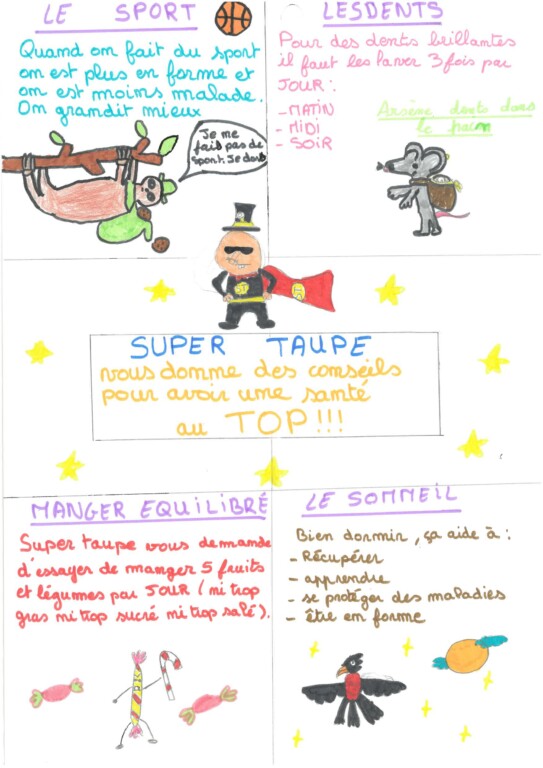 LE SPORT
Quand on fait du sport
on est plus en forme et
on est moins malade.
On grandit mieux
Je me
fais pas de
sport. Je dors
LES DENTS
Pour des dents brillantes
il faut les laver 3 fois par
JOUR :
- MATIN
- MIDI
- SOIR
Arsène dents dans
le pain
SUPER TAUPE
vous donne des conseils
pour avoir une santé
au TOP!!!
MANGER EQUILIBRÉ
Super taupe vous demande
d'essayer de manger 5 fruits
et légumes par JOUR (ni trop
gras ni trop sucré ni trop salé).
LE SOMMEIL
Bien dormir, ça aide à :
- Récupérer
- apprendre
- se protéger des maladies
- être en forme